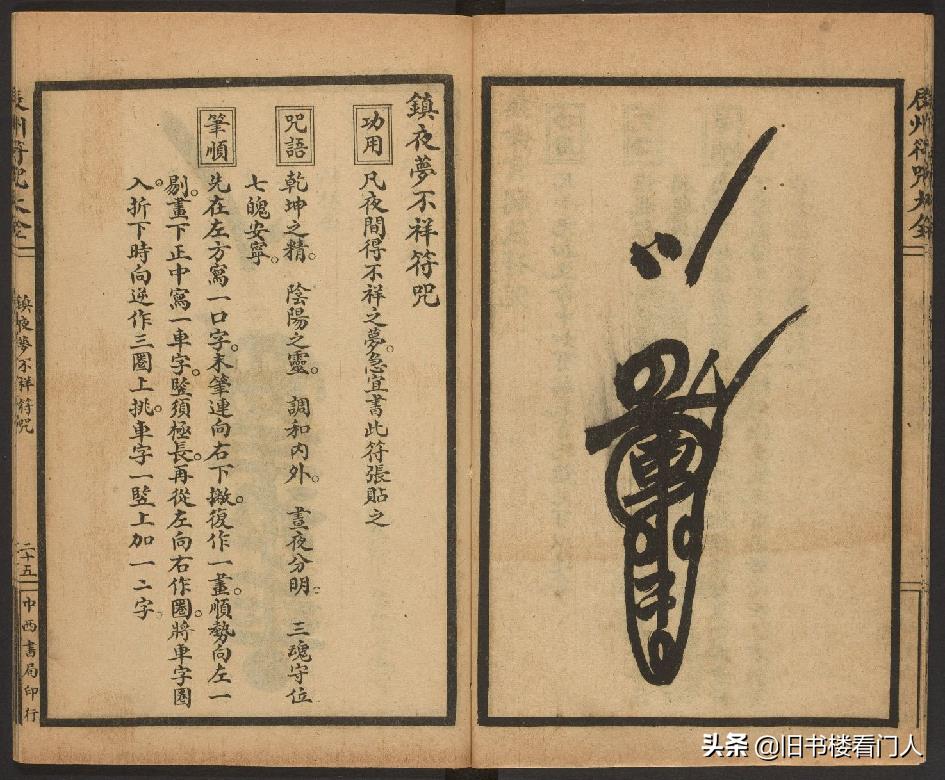 辰州符咒大全
鎮夜夢不祥符咒
功用
凡夜間得不祥之夢。急宜書此符張貼之
咒語
乾坤之精。 陰陽之靈。 調和內外。 晝夜分明。 三魂守位
七魄安寧。
筆順
先在左方寫一口字。末筆連向右下撇。復作一畫。順勢向左一
剔。畫下正中寫一車字。豎須極長。再從左向右作圈。將車字圈
入。折下時向逆作三圈上挑。車字一豎上加一二字。
辰州符咒大全
鎮夜夢不祥符咒
二十五
中西書局印行
头条 @旧书楼看门人